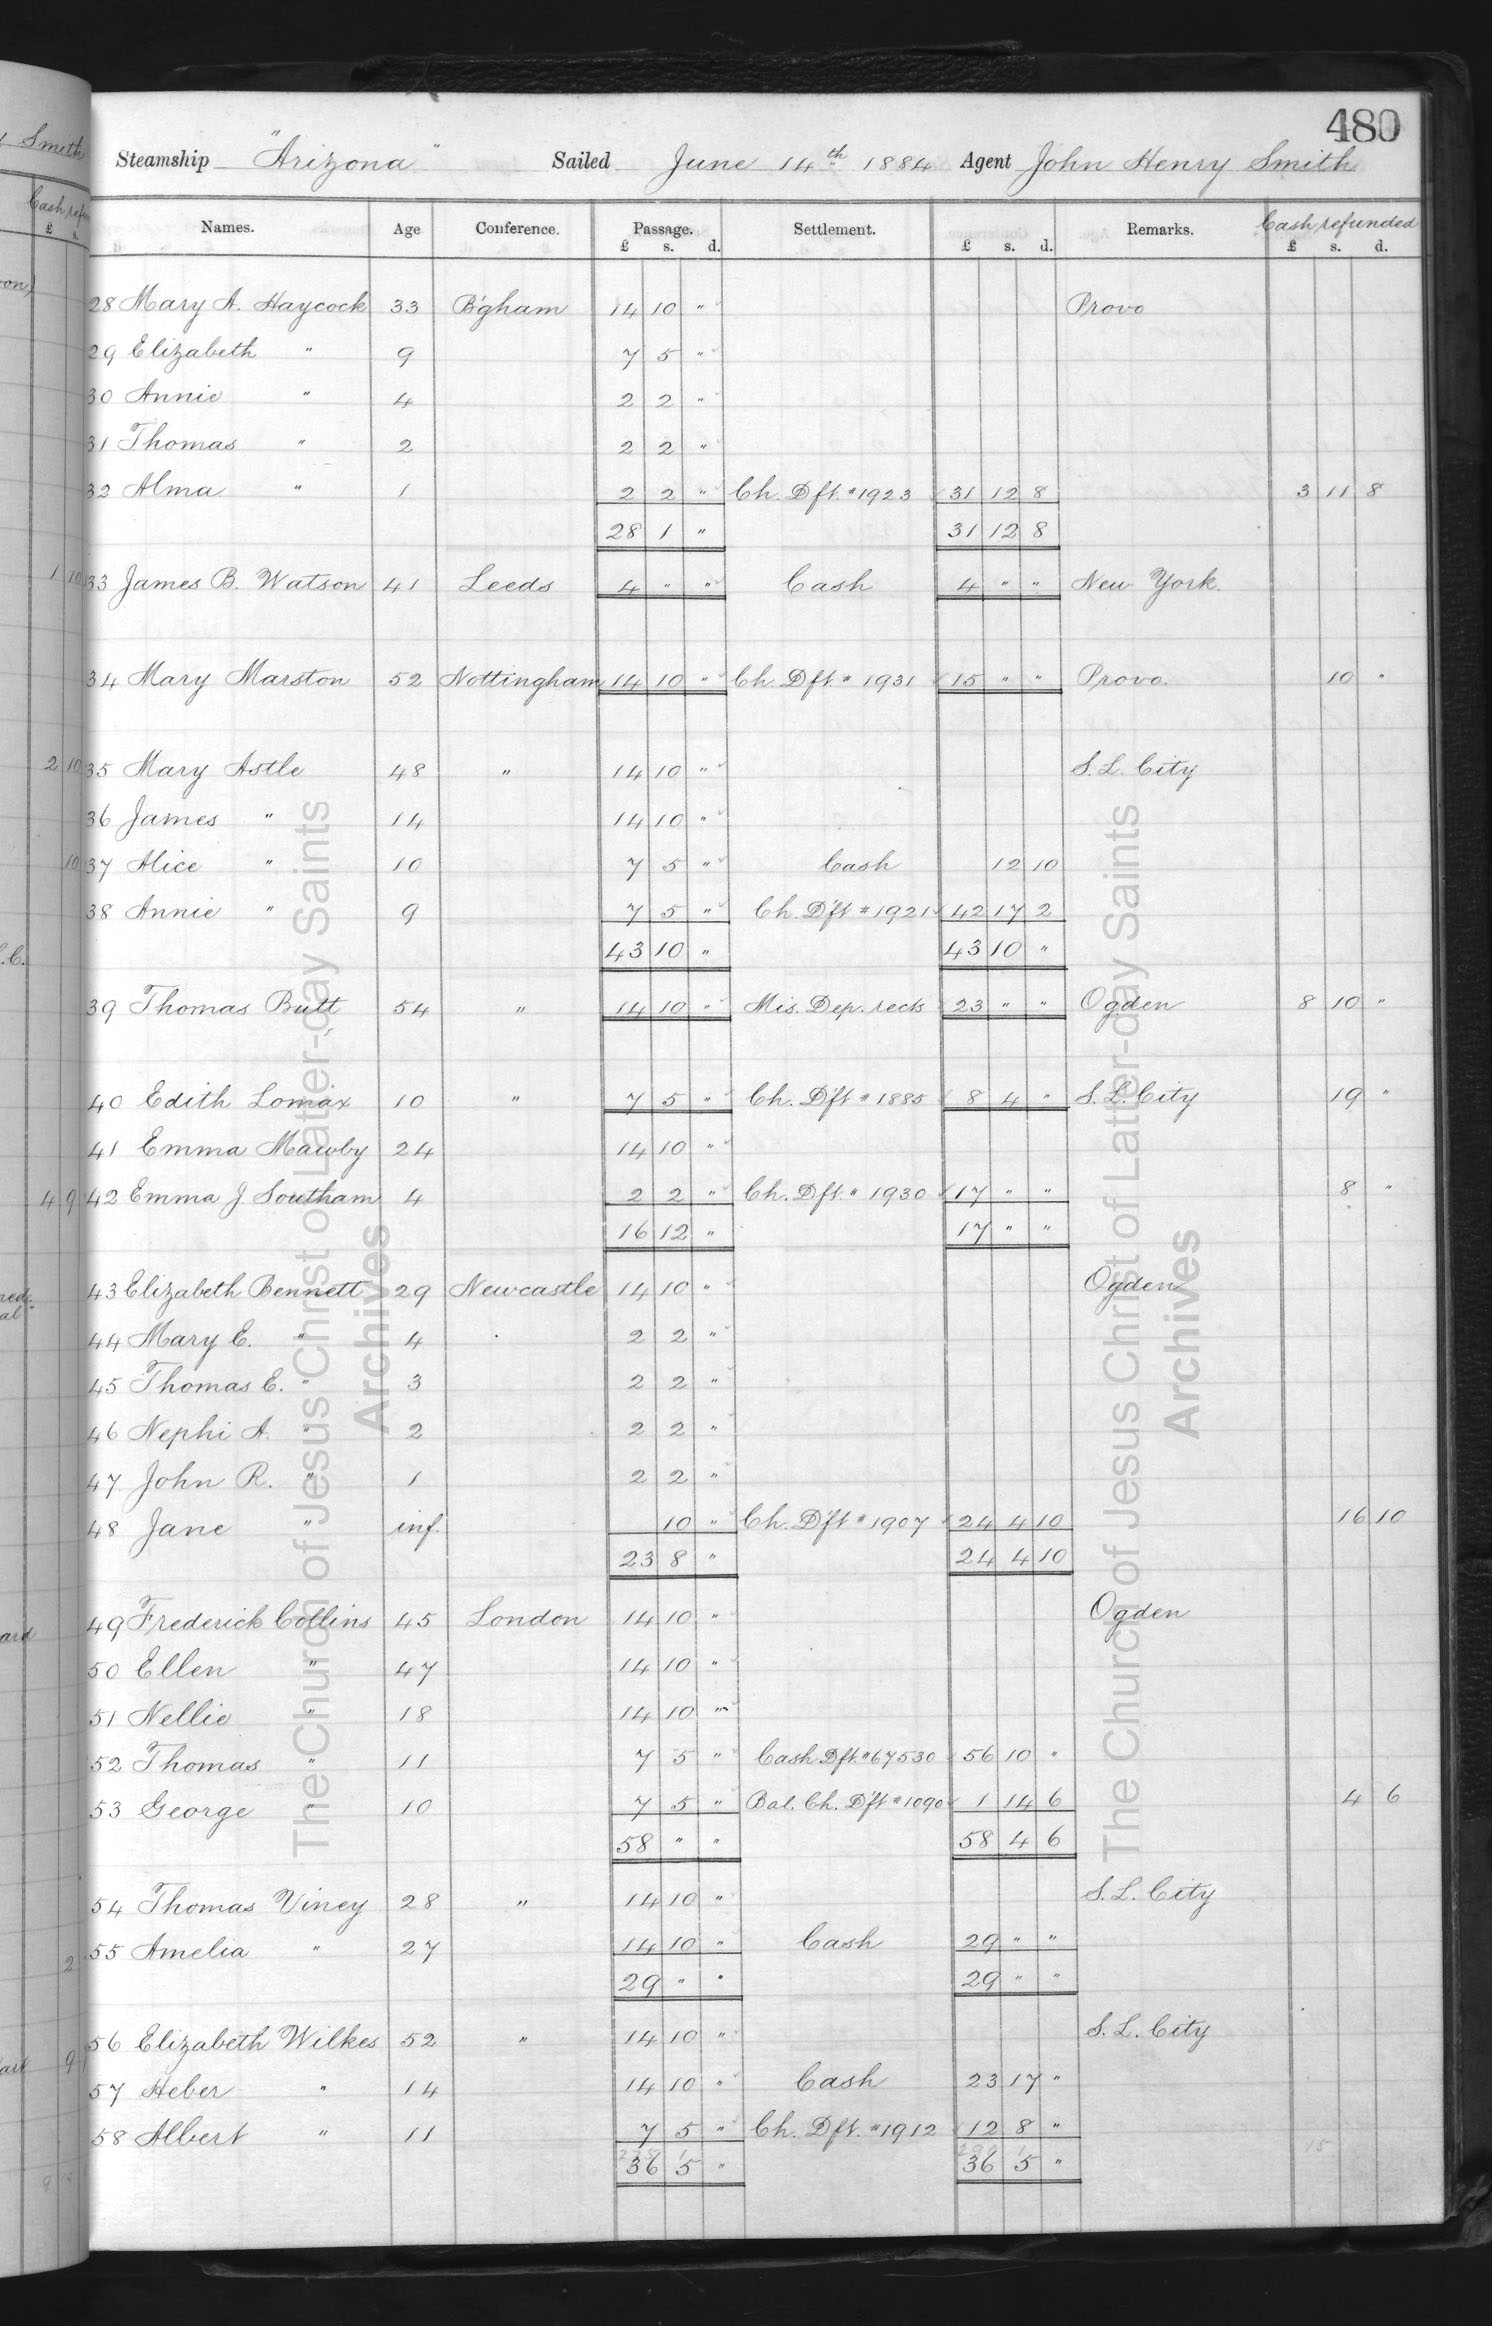 480
Steamship "Arizona" Sailed June 14th 1884 Agent John Henry Smith
Names. Age Conference. Passage. Settlement. Remarks. Cash refunded
£ s. d. £ s. d. £ s. d.
28 Mary A. Haycock 33 B'gham 14 10 " Provo
29 Elizabeth " 9 7 5 "
30 Annie " 4 2 2 "
31 Thomas " 2 2 2 "
32 Alma " 1 2 2 " Ch. Dft. # 1923 31 12 8 3 11 8
28 1 " 31 12 8
33 James B. Watson 41 Leeds 4 " " Cash 4 " " New York.
34 Mary Marston 52 Nottingham 14 10 " Ch. Dft. # 1931 15 " " Provo. 10 "
35 Mary Astle 48 " 14 10 " S. L. City
36 James " 14 14 10 "
37 Alice " 10 7 5 " Cash 12 10
38 Annie " 9 7 5 " Ch. Dft # 1921 42 17 2
43 10 " 43 10 "
39 Thomas Butt 54 " 14 10 " Mis. Dep. recs 23 " " Ogden 8 10 "
40 Edith Lomax 10 " 7 5 " Ch. Dft # 1885 8 4 " S. L. City 19 "
41 Emma Mawby 24 14 10 "
42 Emma J Southam 4 2 2 " Ch. Dft. # 1930 17 " " 8 "
16 12 " 17 " "
43 Elizabeth Bennett 29 Newcastle 14 10 " Ogden
44 Mary E. " 4 2 2 "
45 Thomas E. " 3 2 2 "
46 Nephi A. " 2 2 2 "
47 John R. " 1 2 2 "
48 Jane " inf. 10 " Ch. Dft # 1907 24 4 10 16 10
23 8 " 24 4 10
49 Frederick Collins 45 London 14 10 " Ogden
50 Ellen " 47 14 10 "
51 Nellie " 18 14 10 "
52 Thomas " 11 7 5 " Cash Dft. # 67530 56 10 "
53 George " 10 7 5 " Bal. Ch. Dft # 1090 1 14 6 4 6
58 " " 58 4 6
54 Thomas Viney 28 " 14 10 " S. L. City
55 Amelia " 27 14 10 " Cash 29 " "
29 " " 29 " "
56 Elizabeth Wilkes 52 " 14 10 " S. L. City
57 Heber " 14 14 10 " Cash 23 17 "
58 Albert " 11 7 5 " Ch. Dft. # 1912 12 8 "
36 5 " 36 5 "
The Church of Jesus Christ of Latter-day Saints
Archives
The Church of Jesus Christ of Latter-day Saints
Archives